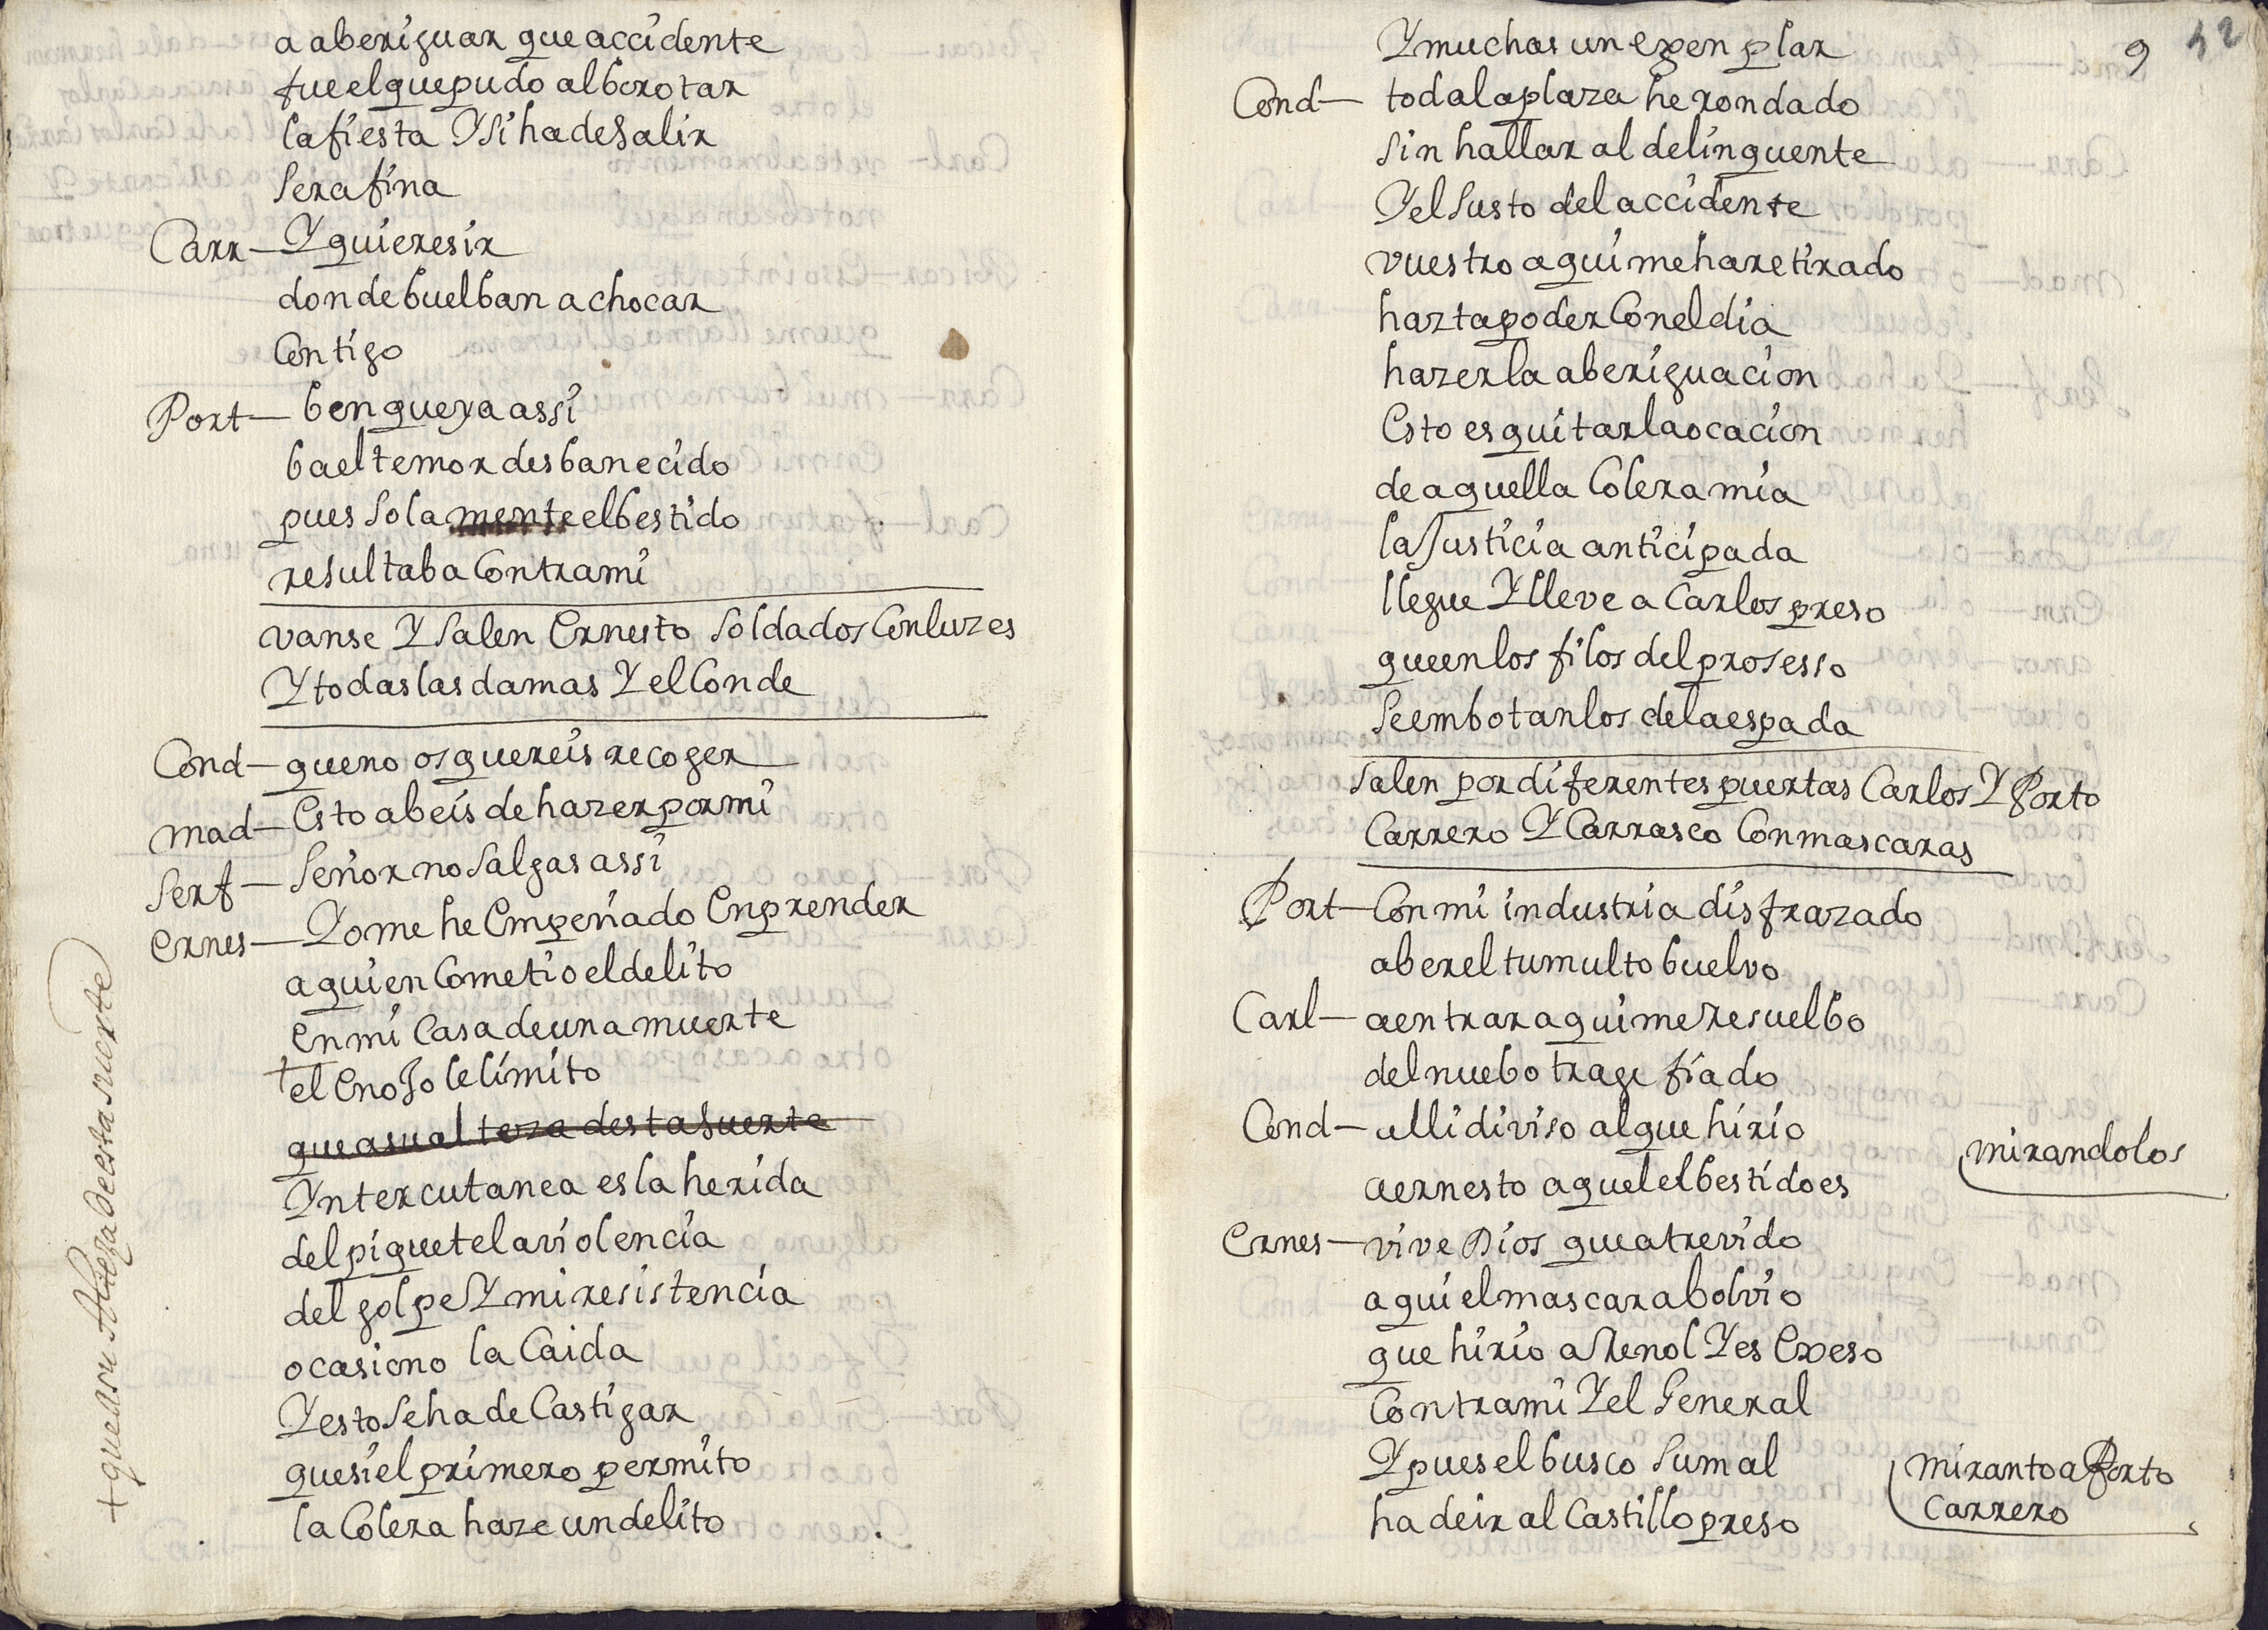 a aberiguar que accidente
fue el que pudo alborotar
la fiesta Y si ha de Salir
Serafina
Carr — Y quieres ir
donde buelban a chocar
Contigo
Port — ben que ya assi
ba el temor desbanecido
pues Sola mente el bestido
resultaba Contra mi
vanse Y Salen Ernesto Soldados Con luzes
Y todas las damas Y el Conde
Cond — que no os quereis recoger
mad — Esto abeis de hazer por mi
Serf — Señor no Salgas assi
Ernes — Yo me he Empeñado En prender
a quien Cometio el delito
en mi Casa de una muerte
+ el Enojo le limito
que a su alteza desta Suerte
+ que a su Alteza de esta suerte
Yntercutanea es la herida
del piquete la violencia
del golpe Y mi resistencia
ocasiono la Caida
Y esto Se ha de Castigar
que si el primero permito
la Colera haze un delito
9 52
Y muchos un exenplar
Cond — toda la plaza he rondado
Sin hallar al delinquente
Y el Susto del accidente
vuestro aqui me ha retirado
hazta poder Con el dia
hazer la aberiguacion
Esto es quitar la ocacion
de aquella Colera mia
la Justicia anticipada
llegue Y lleve a Carlos preso
que en los filos del prosesso
Se embotan los de la espada
Salen por diferentes puertas Carlos Y Porto
Carrero Y Carrasco Con mascaras
Port — Con mi industria disfrazado
a ber el tumulto buelvo
Carl — a entrar aqui me Resuelbo
del nuebo trage fiado
Cond — alli diviso al que hirio
a ernesto aquel el bestido es
mirandolos
Ernes — vive Dios que atrevido
aqui el mascara bolvio
que hirio a Renol Y es Exeso
Contra mi Y el General
Y pues el busco Su mal
ha de ir al Castillo preso
miranto a Porto
Carrero